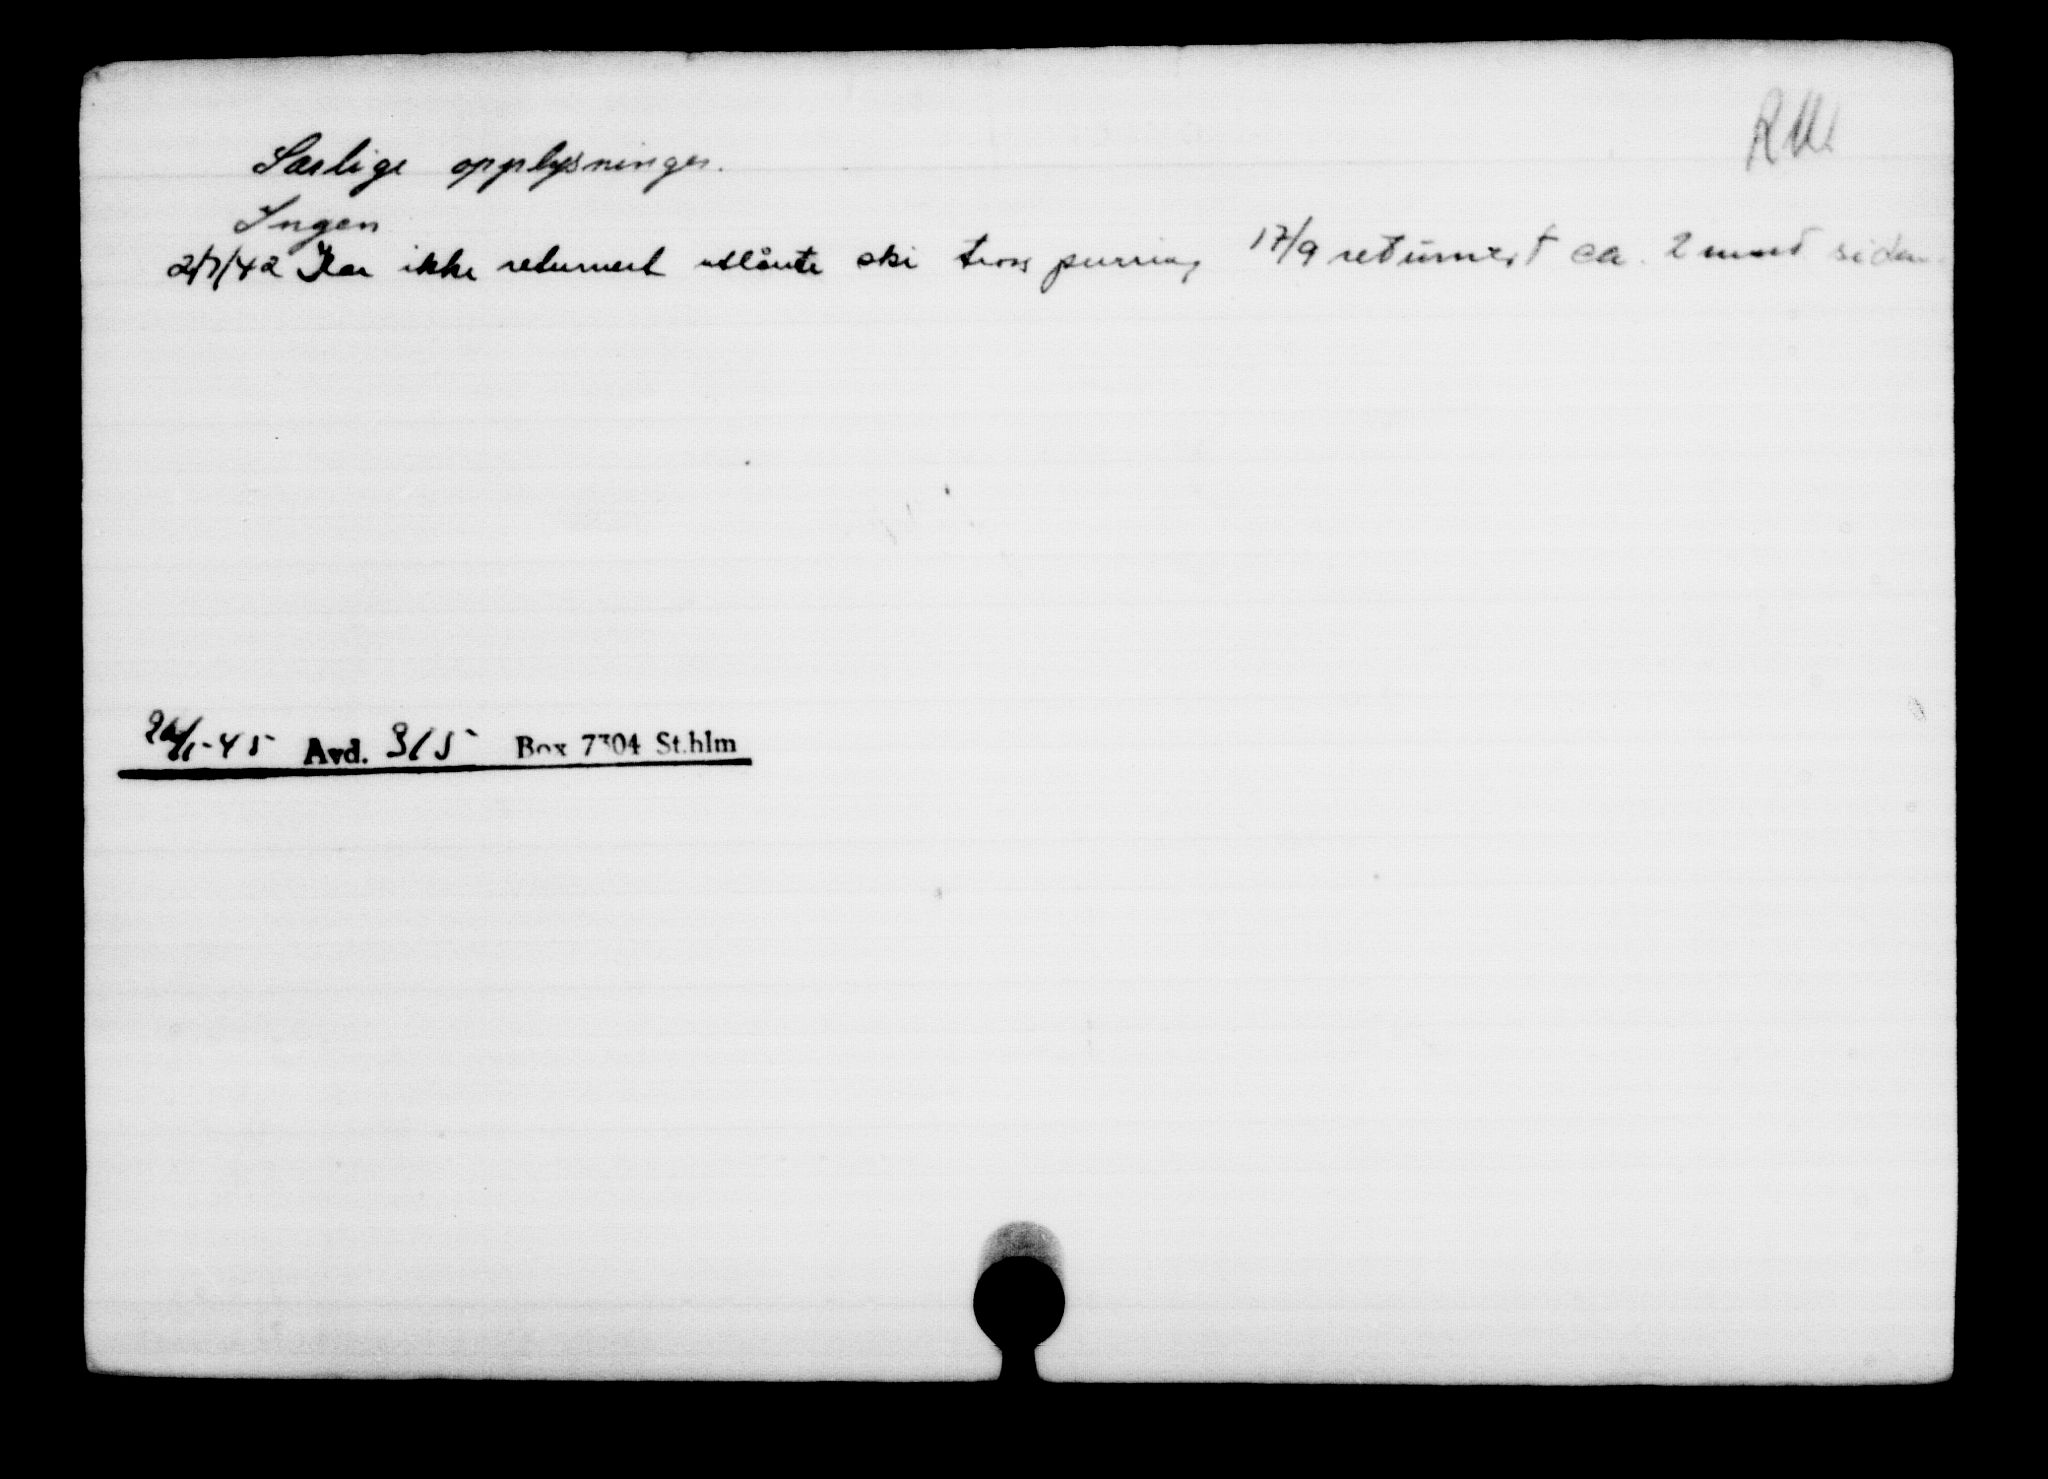 Særlige opplysninger.
Ingen
2/7/42 Har ikke returnert utlånte ski tross purring 17/9 returnert ca. 2 mnd siden
-45 Avd. 315 Box 7304 St.hlm